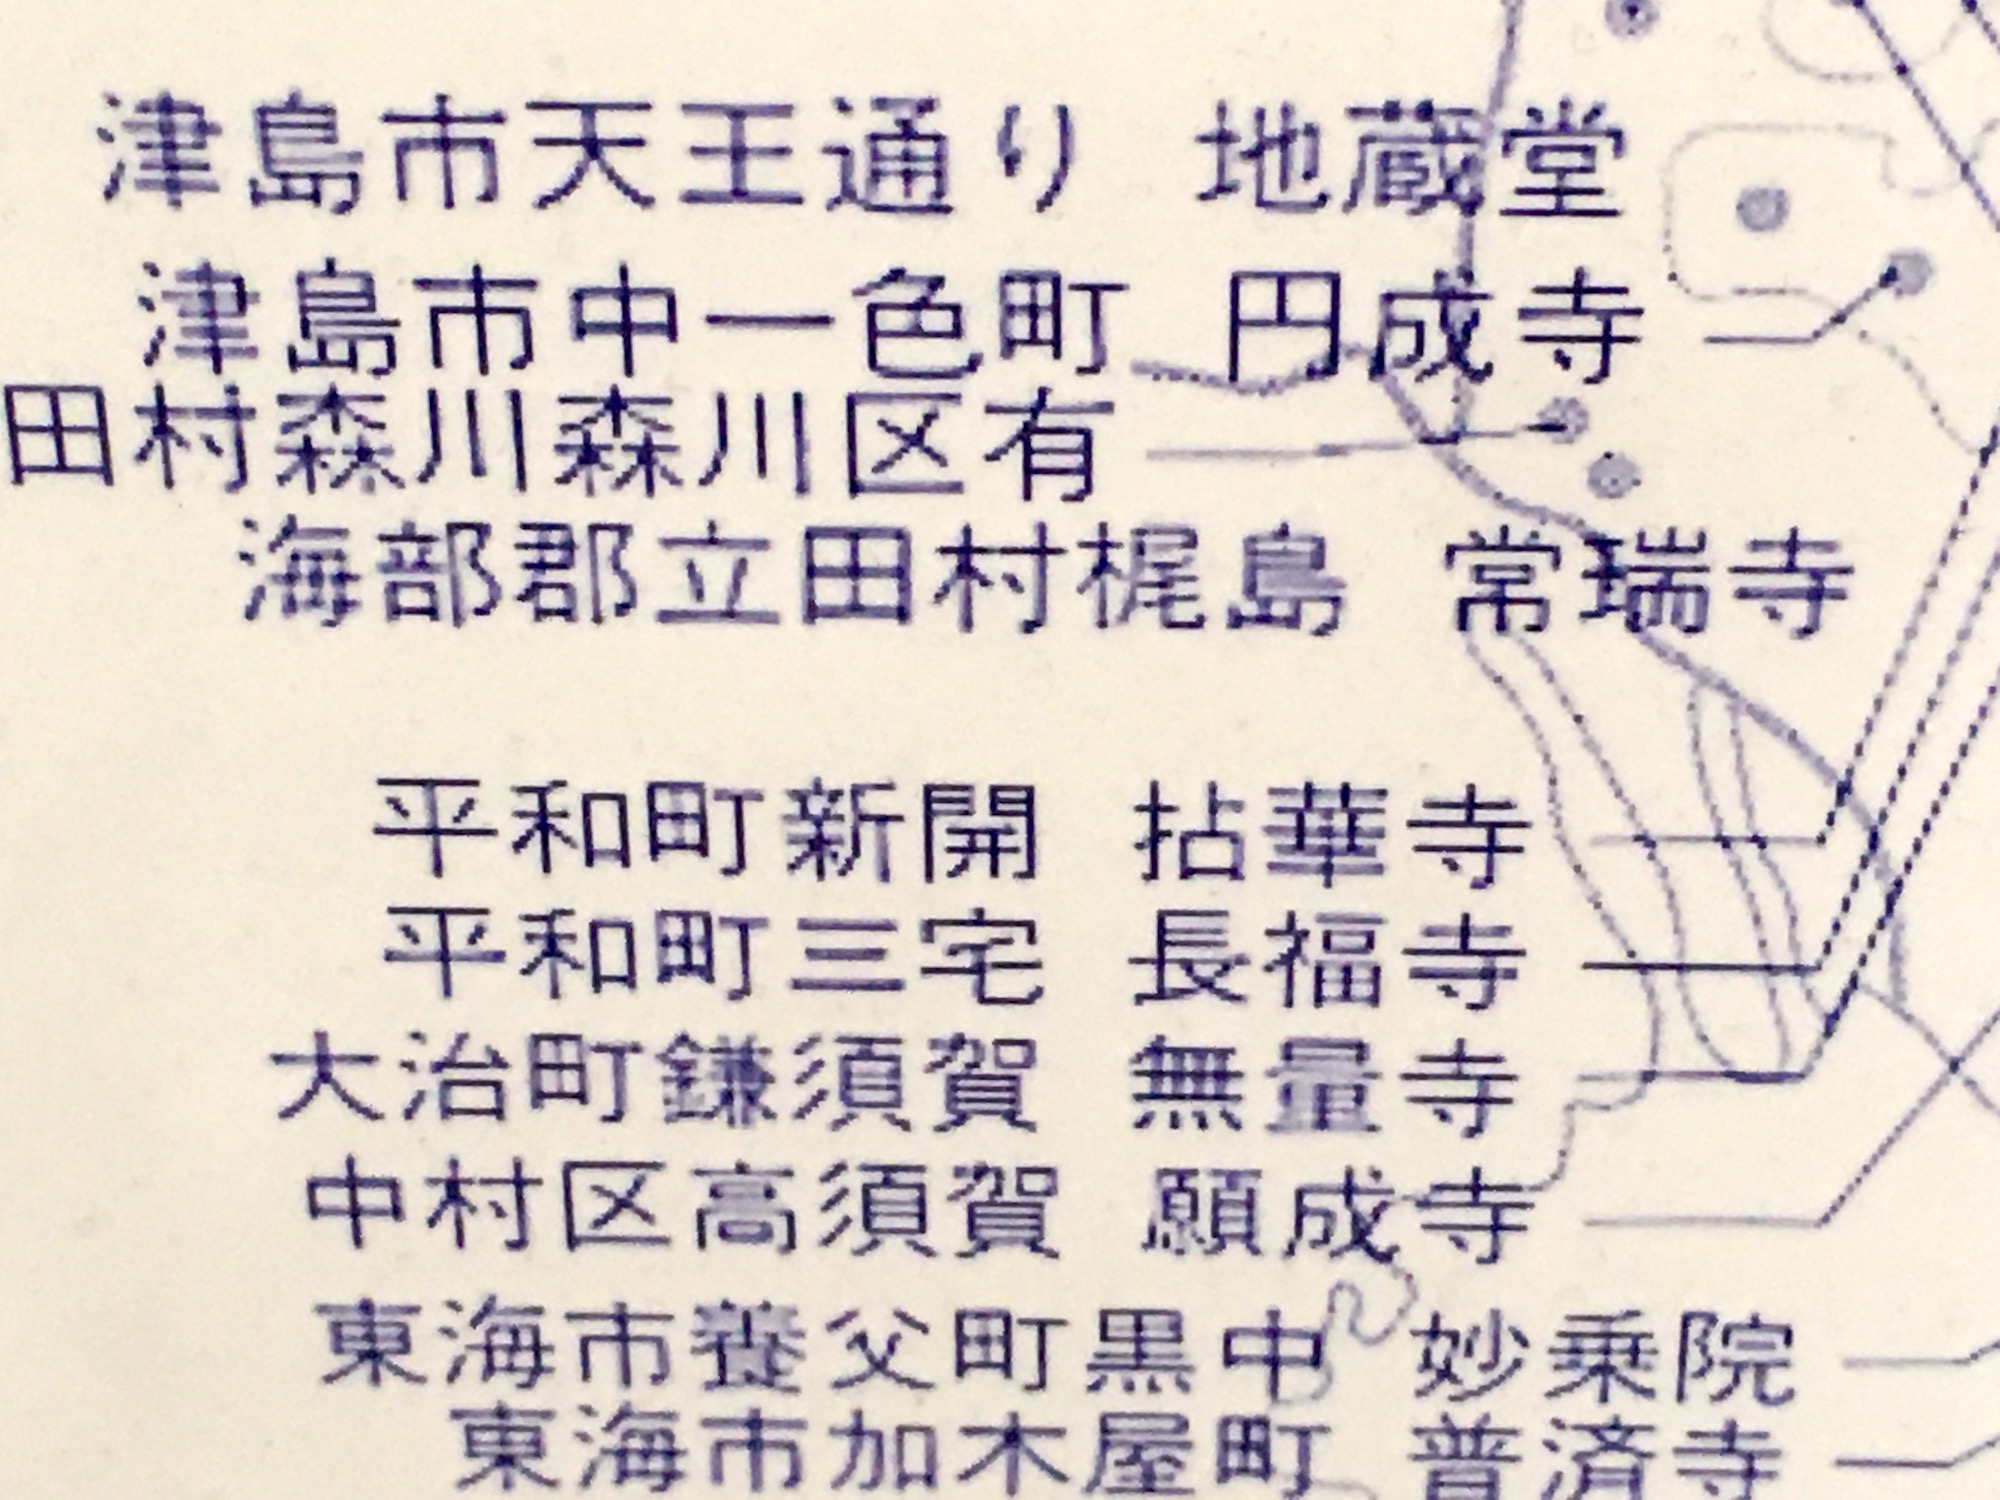 津島市天王通り 地蔵堂
津島市中一色町 円成寺
田村森川森川区有
海部郡立田村梶島 常瑞寺
平和町新開 拈華寺
平和町三宅 長福寺
大治町鎌須賀 無量寺
中村区高須賀 願成寺
東海市養父町黒中 妙乗院
東海市加木屋町 普済寺